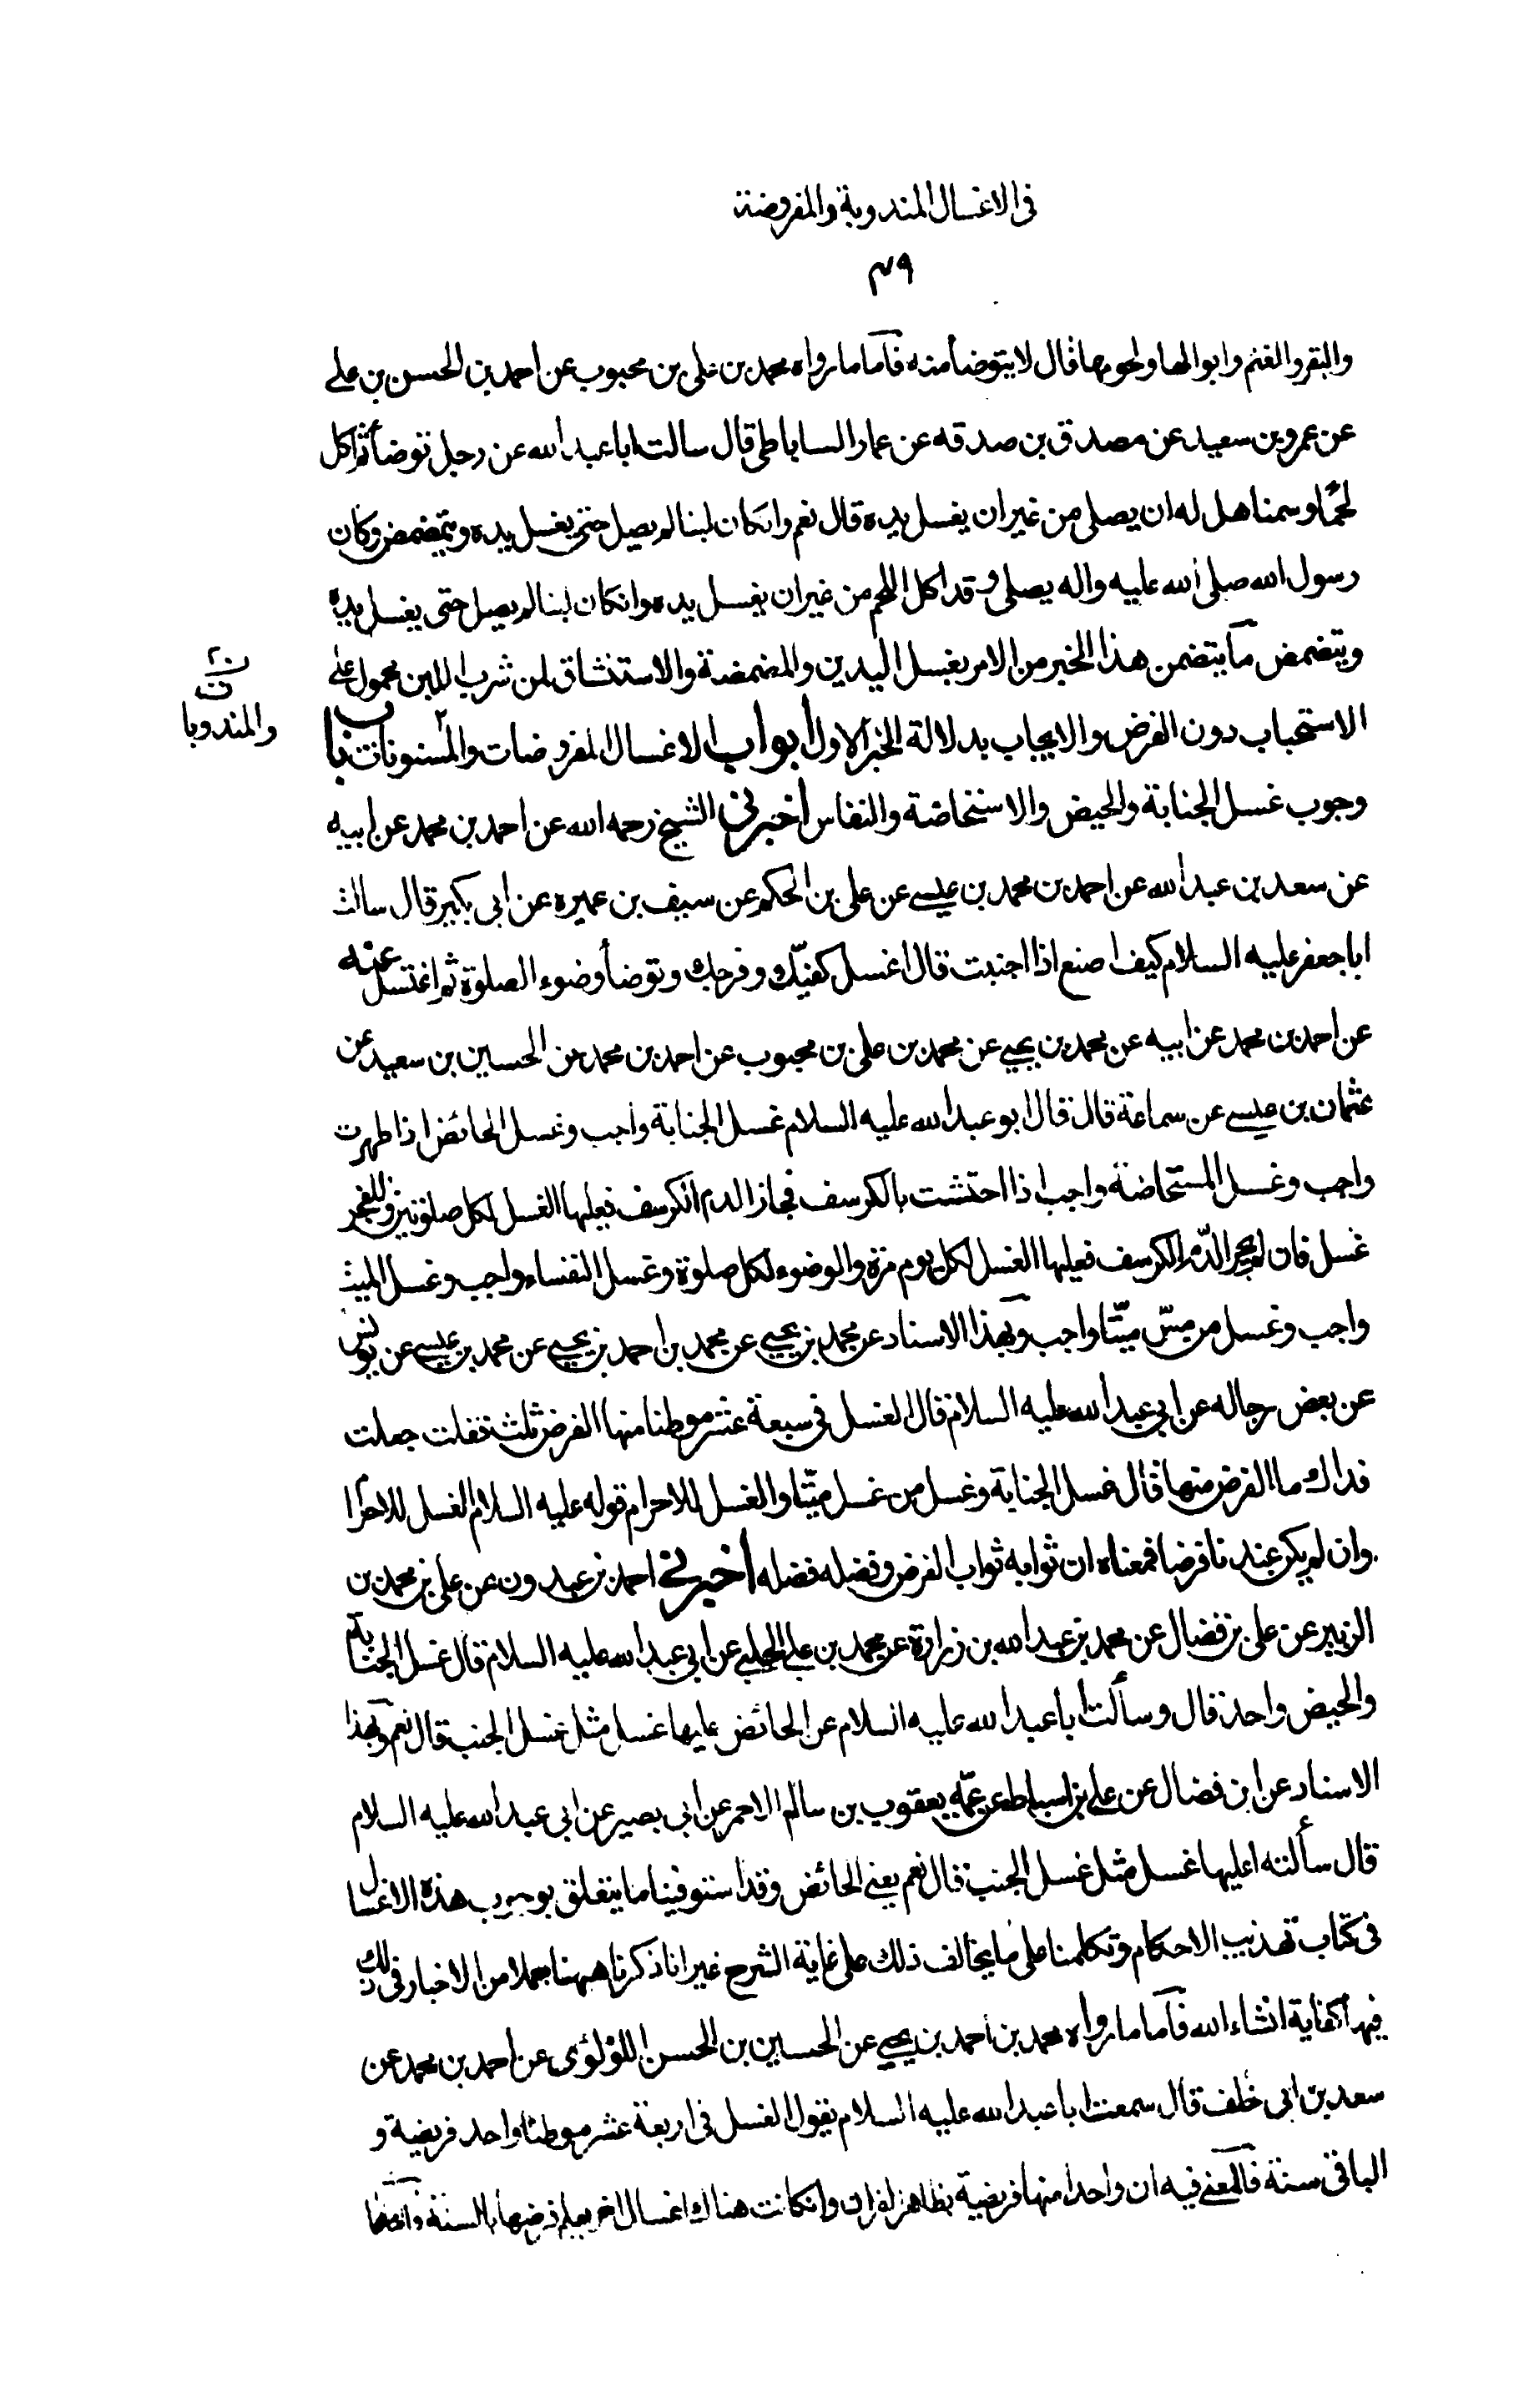 في الاغسال المندوبة والمفروضة
٤٩
والبقر والغنم وابوالها ولحومها فقال لا يتوضأ منه فأما ما رواه محمد بن علي بن محبوب عن احمد بن الحسن بن علي
عن عمرو بن سعيد عن مصدق بن صدقه عن عمار الساباطى قال سالت ابا عبد الله عن رجل توضأ ثم اكل
لحما وسمنا هل له ان يصلى من غير ان يغسل يده قال نعم وانكان لبنا لم يصل حتى يغسل يده ويتمضمض وكان
رسول الله صلى الله عليه واله يصلى وقد اكل اللحم من غير ان يغسل يده وانكان لبنا لم يصل حتى يغسل يده
ويتضمض ما يتضمن هذا الخبر من الامر بغسل اليدين والمضمضة والاستنشاق لمن شرب اللبن محمول على
الاستحباب دون الفرض والايجاب بدلالة الخبر الاول أبواب الاغسال المفروضات والمسنونات باب
والمندوبا
وجوب غسل الجنابة والحيض والاستحاضة والنفاس أخبرني الشيخ رحمه الله عن احمد بن محمد عن ابيه
عن سعد بن عبد الله عن احمد بن محمد بن عيسى عن على بن الحكم عن سيف بن عميره عن ابى بكير قال سالت
ابا جعفر عليه السلام كيف اصنع اذا اجنبت قال اغسل كفيّك وفرجك وتوضأ وضوء الصلوة ثم اغتسل عنه
عن احمد بن محمد عن ابيه عن محمد بن يحيى عن محمد بن على بن محبوب عن احمد بن محمد عن الحسين بن سعيد عن
عثمان بن عيسى عن سماعة قال قال ابو عبد الله عليه السلام غسل الجنابة واجب وغسل الحائض اذا طهرت
واجب وغسل المستحاضة واجب اذا احتشت بالكرسف فجاز الدم الكرسف فعليها الغسل لكل صلوتين وللفجر
غسل فان لم يجز الدّم الكرسف فعليها الغسل لكل يوم مرة والوضوء لكل صلوة وغسل النفساء واجب وغسل الميت
واجب وغسل من مسّ ميّتا واجب وبهذا الاسناد عن محمد بن يحيى عن محمد بن احمد بن يحيى عن محمد بن عيسى عن يونس
عن بعض رجاله عن ابي عبد الله عليه السلام قال الغسل في سبعة عشر موطنا منها الفرض ثلث فقلت جعلت
فداك ما الفرض منها قال غسل الجنابة وغسل من غسل ميّتا والغسل للاحرام قوله عليه السلام الغسل للاحرا
وان لم يكن عندنا فرضا فمعناه ان ثوابه ثواب الفرض وفضله فضله أخبرني احمد بن عبدون عن على بن محمد بن
الزبير عن على بن فضال عن محمد بن عبد الله بن زرارة عن محمد بن على الحلبي عن ابي عبد الله عليه السلام قال غسل الجنابة
والحيض واحد قال وسألت أبا عبد الله عليه السلام عن الحائض عليها غسل مثل غسل الجنب قال نعم وبهذا
الاسناد عن ابن فضال عن على بن اسباط عن عمّه يعقوب بن سالم الاحمر عن ابى بصير عن ابى عبد الله عليه السلام
قال سألته اعليها غسل مثل غسل الجنب قال نعم يعنى الحائض وقد استوفينا ما يتعلق بوجوب هذه الاغسال
في كتاب تهذيب الاحكام وتكلمنا على ما يخالف ذلك على غاية الشرح غير انا ذكرنا ههنا جملا من الاخبار في ذلك
فيها كفاية انشاء الله فأما ما رواه محمد بن أحمد بن يحيى عن الحسين بن الحسن اللؤلؤى عن احمد بن محمد عن
سعد بن ابى خلف قال سمعت ابا عبد الله عليه السلام يقول الغسل في اربعة عشر موطنا واحد فريضة و
الباقى سنة فالمعنى فيه ان واحدا منها فريضة بظاهر القران وانكانت هناك اغسال اخر يعلم فرضها بالسنة